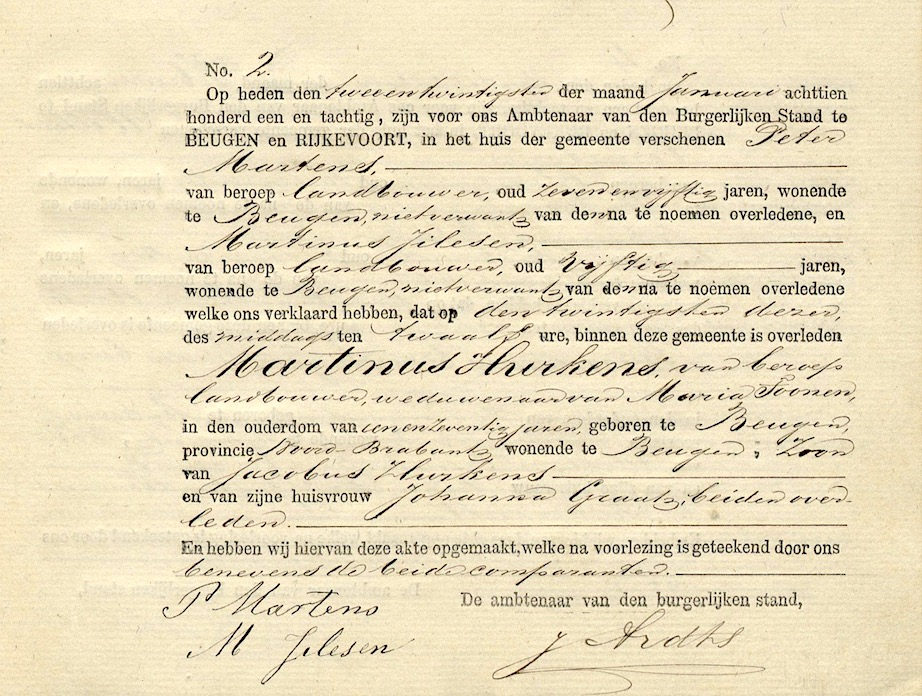 No. 2.
Op heden den tweeentwintigsten der maand Januari achttien
honderd een en tachtig, zijn voor ons Ambtenaar van den Burgerlijken Stand te
BEUGEN en RIJKEVOORT, in het huis der gemeente verschenen Peter
Martens,
van beroep landbouwer, oud zevenenvijftig jaren, wonende
te Beugen, niet verwant van den na te noemen overledene, en
Martinus Jilesen,
van beroep landbouwer, oud vijftig jaren,
wonende te Beugen, niet verwant van den na te noemen overledene
welke ons verklaard hebben, dat op den twintigsten dezer,
des middags ten twaalf ure, binnen deze gemeente is overleden
Martinus Hurkens, van beroep
landbouwer, weduwenaar van Maria Toonen,
in den ouderdom van eenenzeventig jaren, geboren te Beugen,
provincie Noord-Brabant, wonende te Beugen; Zoon
van Jacobus Hurkens
en van zijne huisvrouw Johanna Graat, beiden over-
leden.
En hebben wij hiervan deze akte opgemaakt, welke na voorlezing is geteekend door ons
benevens de beide comparanten.
De ambtenaar van den burgerlijken stand,
P Martens
M Jilesen